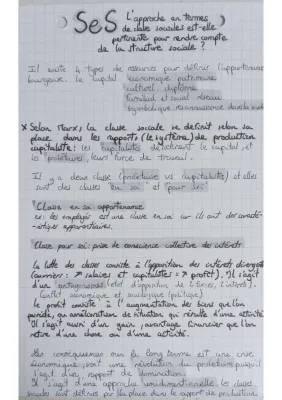 SeS L'approche en termes
de classe sociales est-elle
pertinente pour rendre compte
de la structure sociale ?
Il existe 4 types de ressources pour définir l'appartenance
bourgeoise. le capital économique patrimoine
culturel diplôme
familial et social réseau
symbolique reconnaissance
* Selon Marx, la classe sociale se définit selon sa
place dans les rapports (le système) de production
capitaliste: les capitalistes détiennent le capital et
les prolétaires, leurs force de travail.
Il y a deux classe (prolétaire vs capitaliste) et elles
sont des classes "en soi" et "pour soi"
Classe en soi: appartenance
ex: les employés est une classe en soi car ils ont des caracté-
ristiques
Classe pour soi: prise de conscience collective des intérêts
la lutte des classes consiste à l'opposition des intérêts divergents
(ouvriers: ↗ salaires et capitalistes = ↗ profit). Il s'agit
d'un antagonisme (état d'opposition de 2 forces, 2 intérêts).
Conflit économique et sociologique (politique)
le profit consiste à l'augmentation des biens que l'on
possède, ou amélioration de situation qui résulte d'une activité.
Il s'agit aussi d'un gain, avantage financier que l'on
retire d'une chose ou d'une activité.
Les conséquences sur le long terme est une crise
économique, soit une révolution du prolétariat puisqu'il
s'agit d'un rapport de domination.
Il s'agit d'une approche unidimensionnelle, les classes
sociales sont définies par la place dans le rapport de production